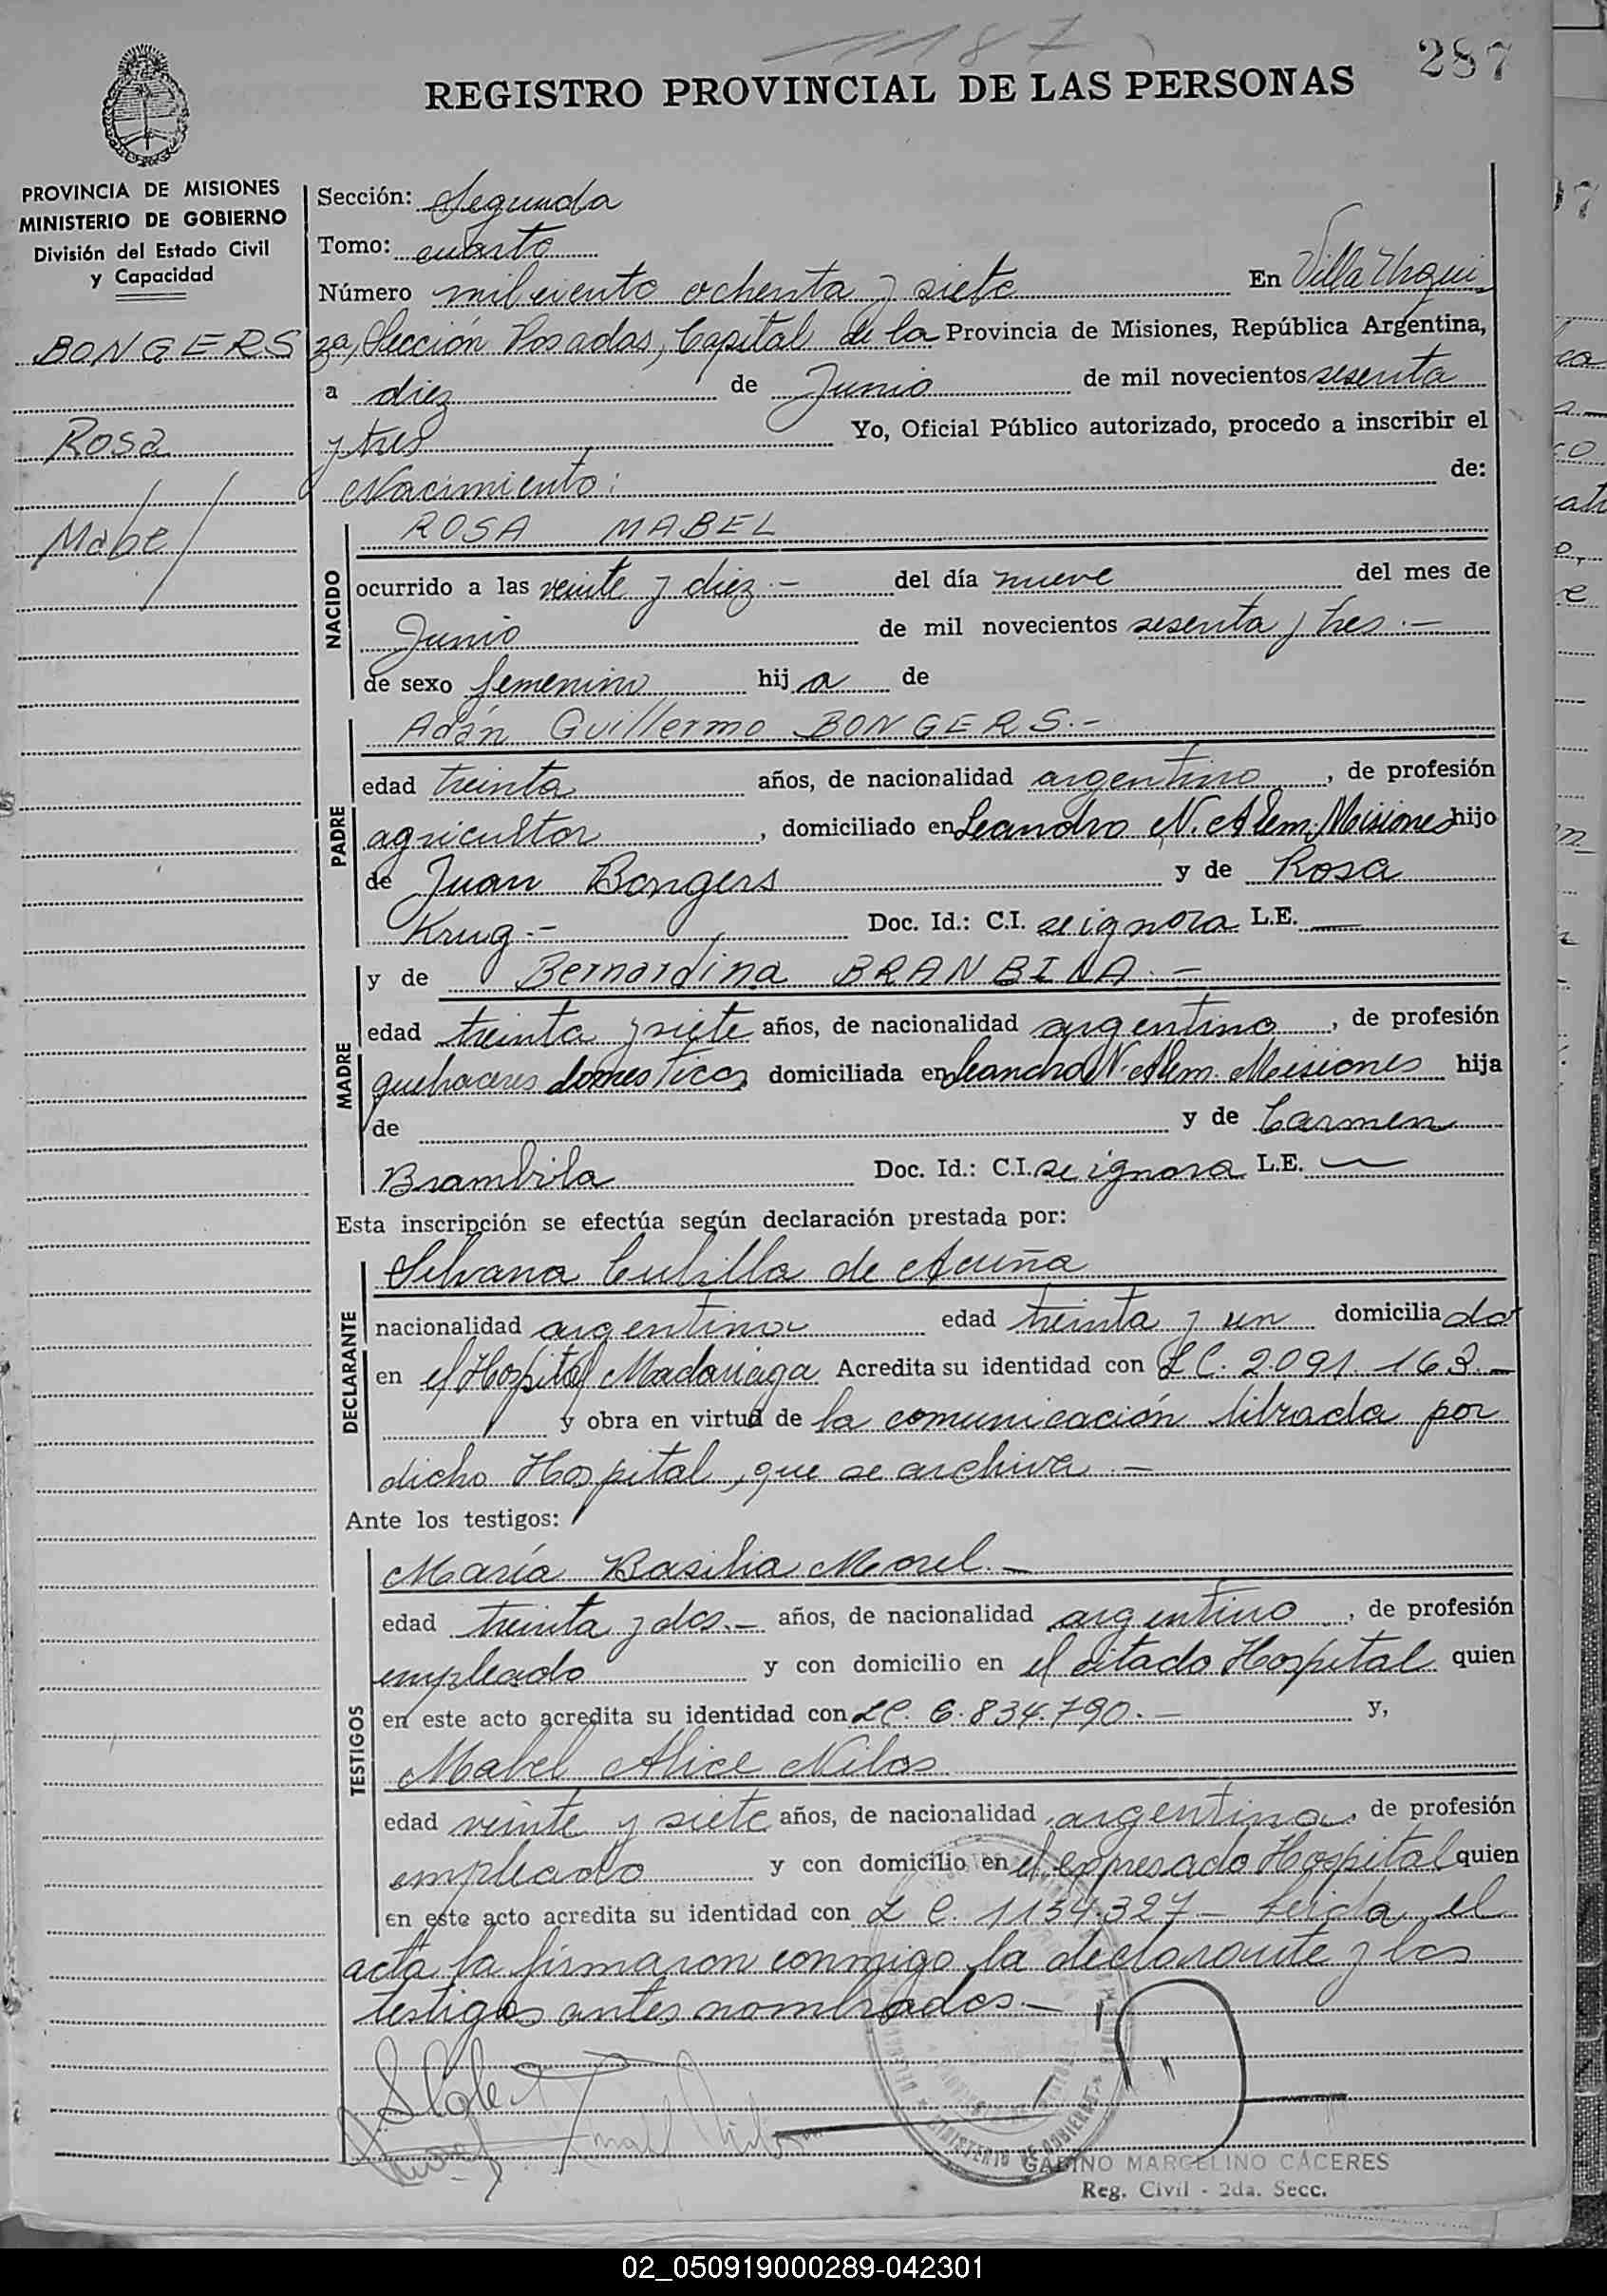 1187
287
REGISTRO PROVINCIAL DE LAS PERSONAS
PROVINCIA DE MISIONES
MINISTERIO DE GOBIERNO
División del Estado Civil
y Capacidad
BONGERS
Rosa
Mabel
Sección: Segunda
Tomo: cuarto
Número mil ciento ochenta y siete En Villa Urqui
za, Sección Posadas, Capital de la Provincia de Misiones, República Argentina,
a diez de Junio de mil novecientos sesenta
y tres Yo, Oficial Público autorizado, procedo a inscribir el
Nacimiento: de:
NACIDO
ROSA MABEL
ocurrido a las veinte y diez.- del día nueve del mes de
Junio de mil novecientos sesenta y tres.-
de sexo femenino hij a de
PADRE
Adán Guillermo BONGERS.-
edad treinta años, de nacionalidad argentino, de profesión
agricultor, domiciliado en Leandro N. Alem, Misiones hijo
de Juan Bongers y de Rosa
Krug.- Doc. Id.: C.I. se ignora L.E. —
MADRE
y de Bernardina BRANBILA.-
edad treinta y siete años, de nacionalidad argentina, de profesión
quehaceres domesticos domiciliada en Leandro N. Alem. Misiones hija
de y de Carmen
Brambila Doc. Id.: C.I. se ignora L.E. —
Esta inscripción se efectúa según declaración prestada por:
DECLARANTE
Silvana Cubilla de Acuña
nacionalidad argentina edad treinta y un domicilia do
en el Hospital Madariaga Acredita su identidad con L C. 2.091.163.-
y obra en virtud de la comunicación librada por
dicho Hospital, que se archiva.-
Ante los testigos:
TESTIGOS
María Basilia Morel.-
edad treinta y dos.- años, de nacionalidad argentino, de profesión
empleado y con domicilio en el citado Hospital quien
en este acto acredita su identidad con LC. 6.834.790.- y,
Mabel Alice Nilos
edad veinte y siete años, de nacionalidad argentina, de profesión
empleado y con domicilio en el expresado Hospital quien
en este acto acredita su identidad con L C. 1134.327- Leida el
acta la firmaron conmigo la declarante y los
testigos antes nombrados.-
GABINO MARCELINO CACERES
Reg. Civil - 2da. Secc.
02_050919000289-042301